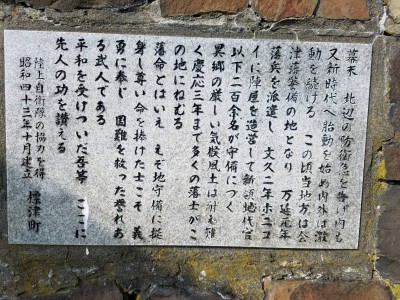 幕末 北辺の防衛急を告げ内も
又新時代へ胎動を始め内外は激
動を続ける この頃当地方は会
津藩警備の地となり 万延元年
藩兵を派遣し 文久二年ホニコ
イに陣屋を造営して新領地代官
以下二百余名が守備につく
異郷の厳しい気候風土は耐え難
く慶応三年まで多くの藩士がこ
の地にねむる
藩命とはいえ えぞ地守備に挺
身し尊い命を捧げた士こそ 義
勇に奉じ 国難を救った誉れあ
る武人である
平和を受けついだ吾等 ここに
先人の功を讃える
陸上自衛隊の協力を得
昭和四十三年十月建立 標津町